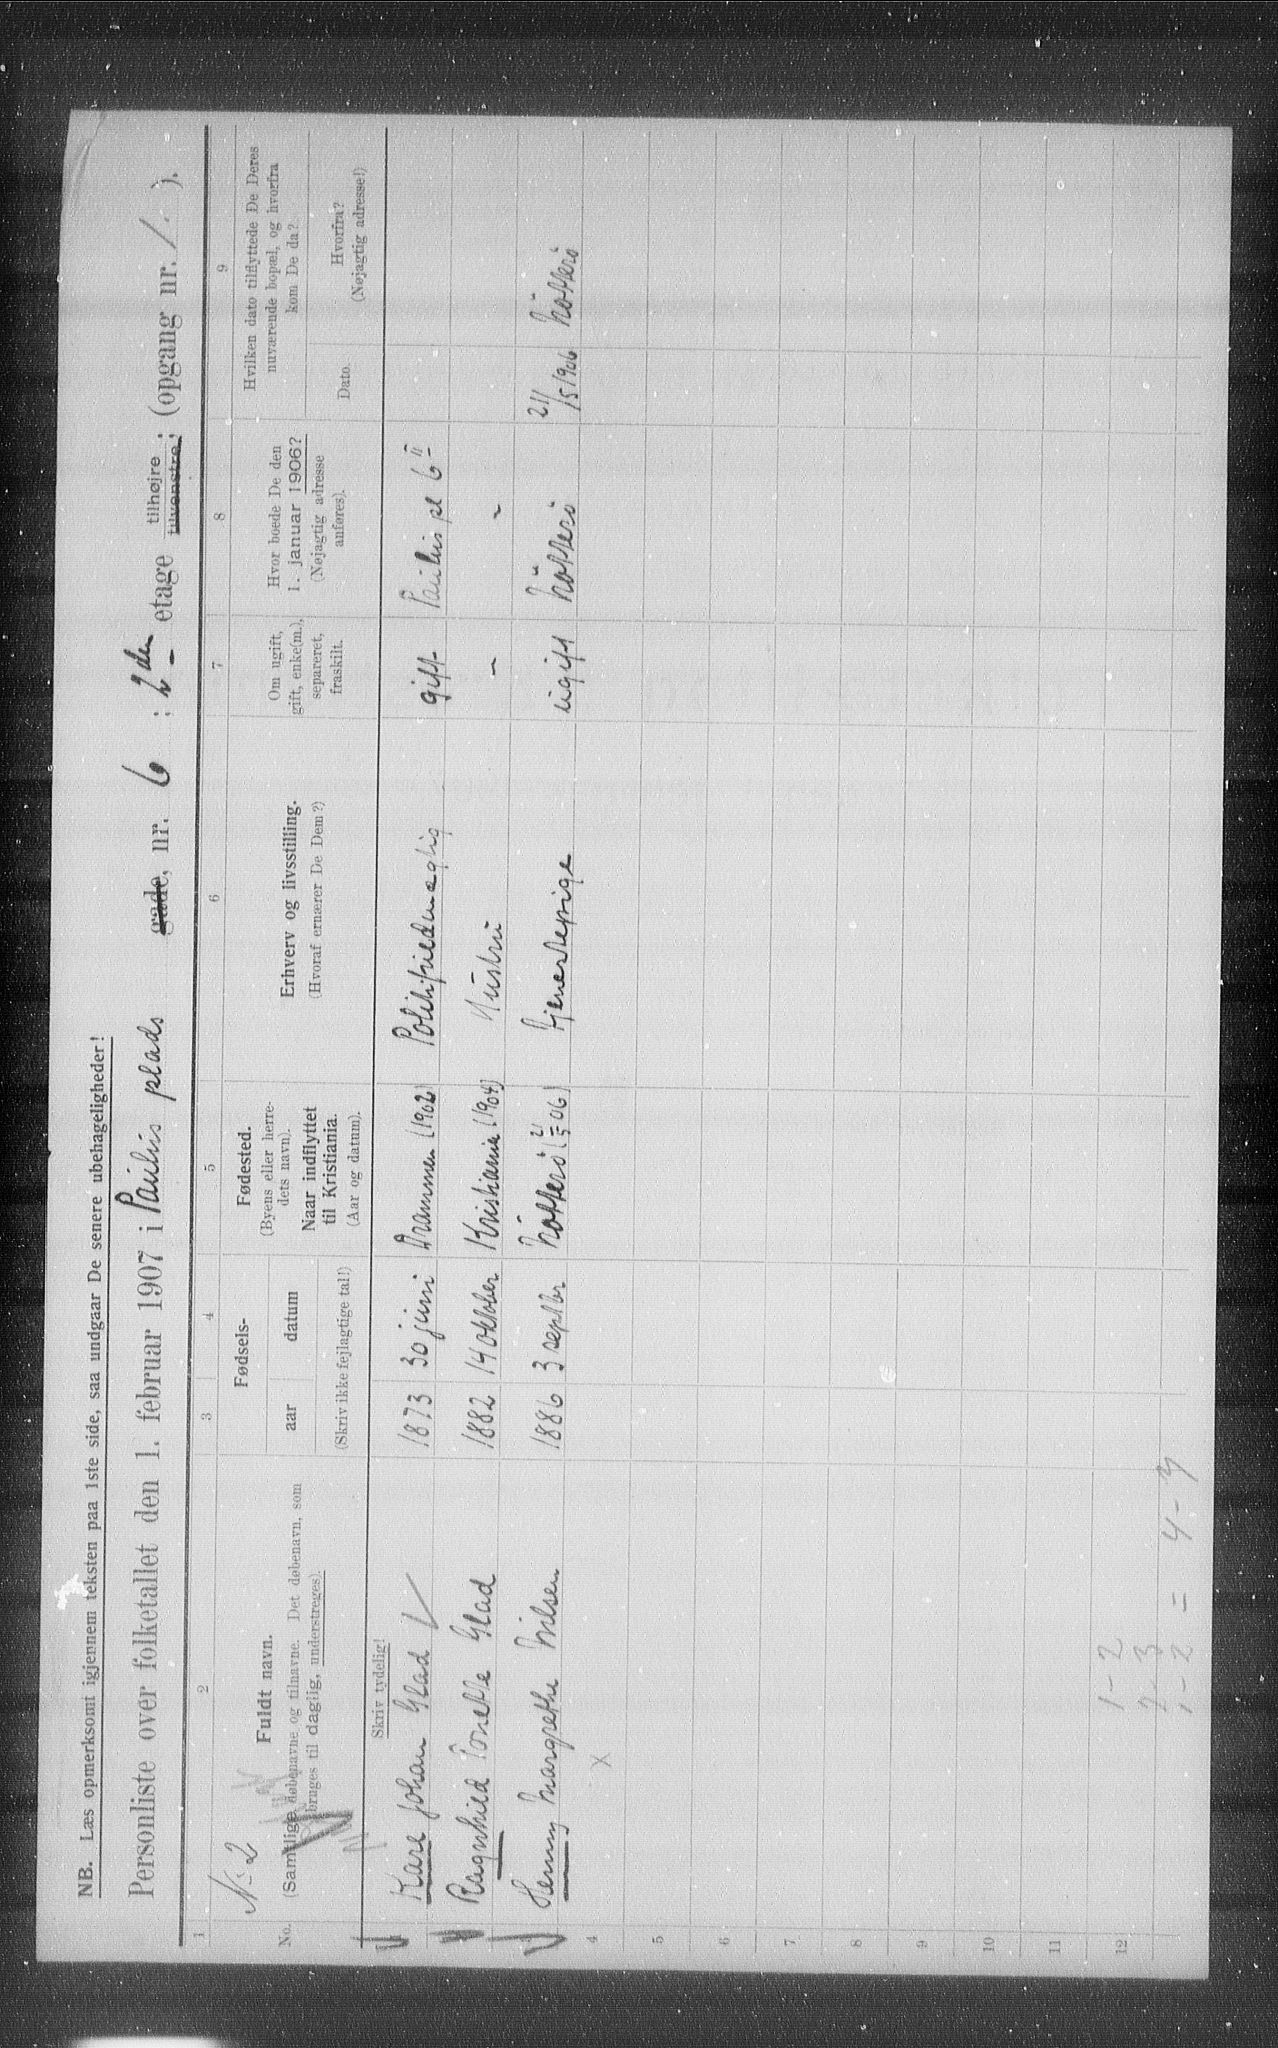 NB. Læs opmerksomt igjennem teksten paa 1ste side, saa undgaar De senere ubehageligheder!
Personliste over folketallet den 1. februar 1907 i Paulus plads gade, nr. 6 ; 2den etage tilhøjre ; tilvenstre ; (opgang nr. 1. ).
1 2 3 4 5 6 7 8 9
No. 2
No.
Fuldt navn.
(Samtlige døbenavne og tilnavne. Det døbenavn, som
bruges til daglig, understreges).
Fødsels-
aar datum
(Skriv ikke fejlagtige tal!)
Fødested.
(Byens eller herre-
dets navn).
Naar indflyttet
til Kristiania.
(Aar og datum).
Erhverv og livsstilling.
(Hvoraf ernærer De Dem?)
Om ugift,
gift, enke(m.),
separeret,
fraskilt.
Hvor boede De den
1. januar 1906?
(Nøjagtig adresse
anføres).
Hvilken dato tilflyttede De Deres
nuværende bopæl, og hvorfra
kom De da?
Dato.
Hvorfra?
(Nøjagtig adresse!)
Skriv tydelig!
Kare Johan Glad 1873 30 juni Drammen (1902) gift Paulus pl 6
Ragnhild Glad 1882 14 oktober Kristiania (1904) Hustru
3 Henny Margrethe Nilsen 1886 3 septbr Nötterö (21/5 06) Tjenestepige ugift Nötterö 21/5 1906 Nötterö
4
5
6
7
8
9
10
11
12
1 - 2
2 - 3
1 - 2 = 4 - 3